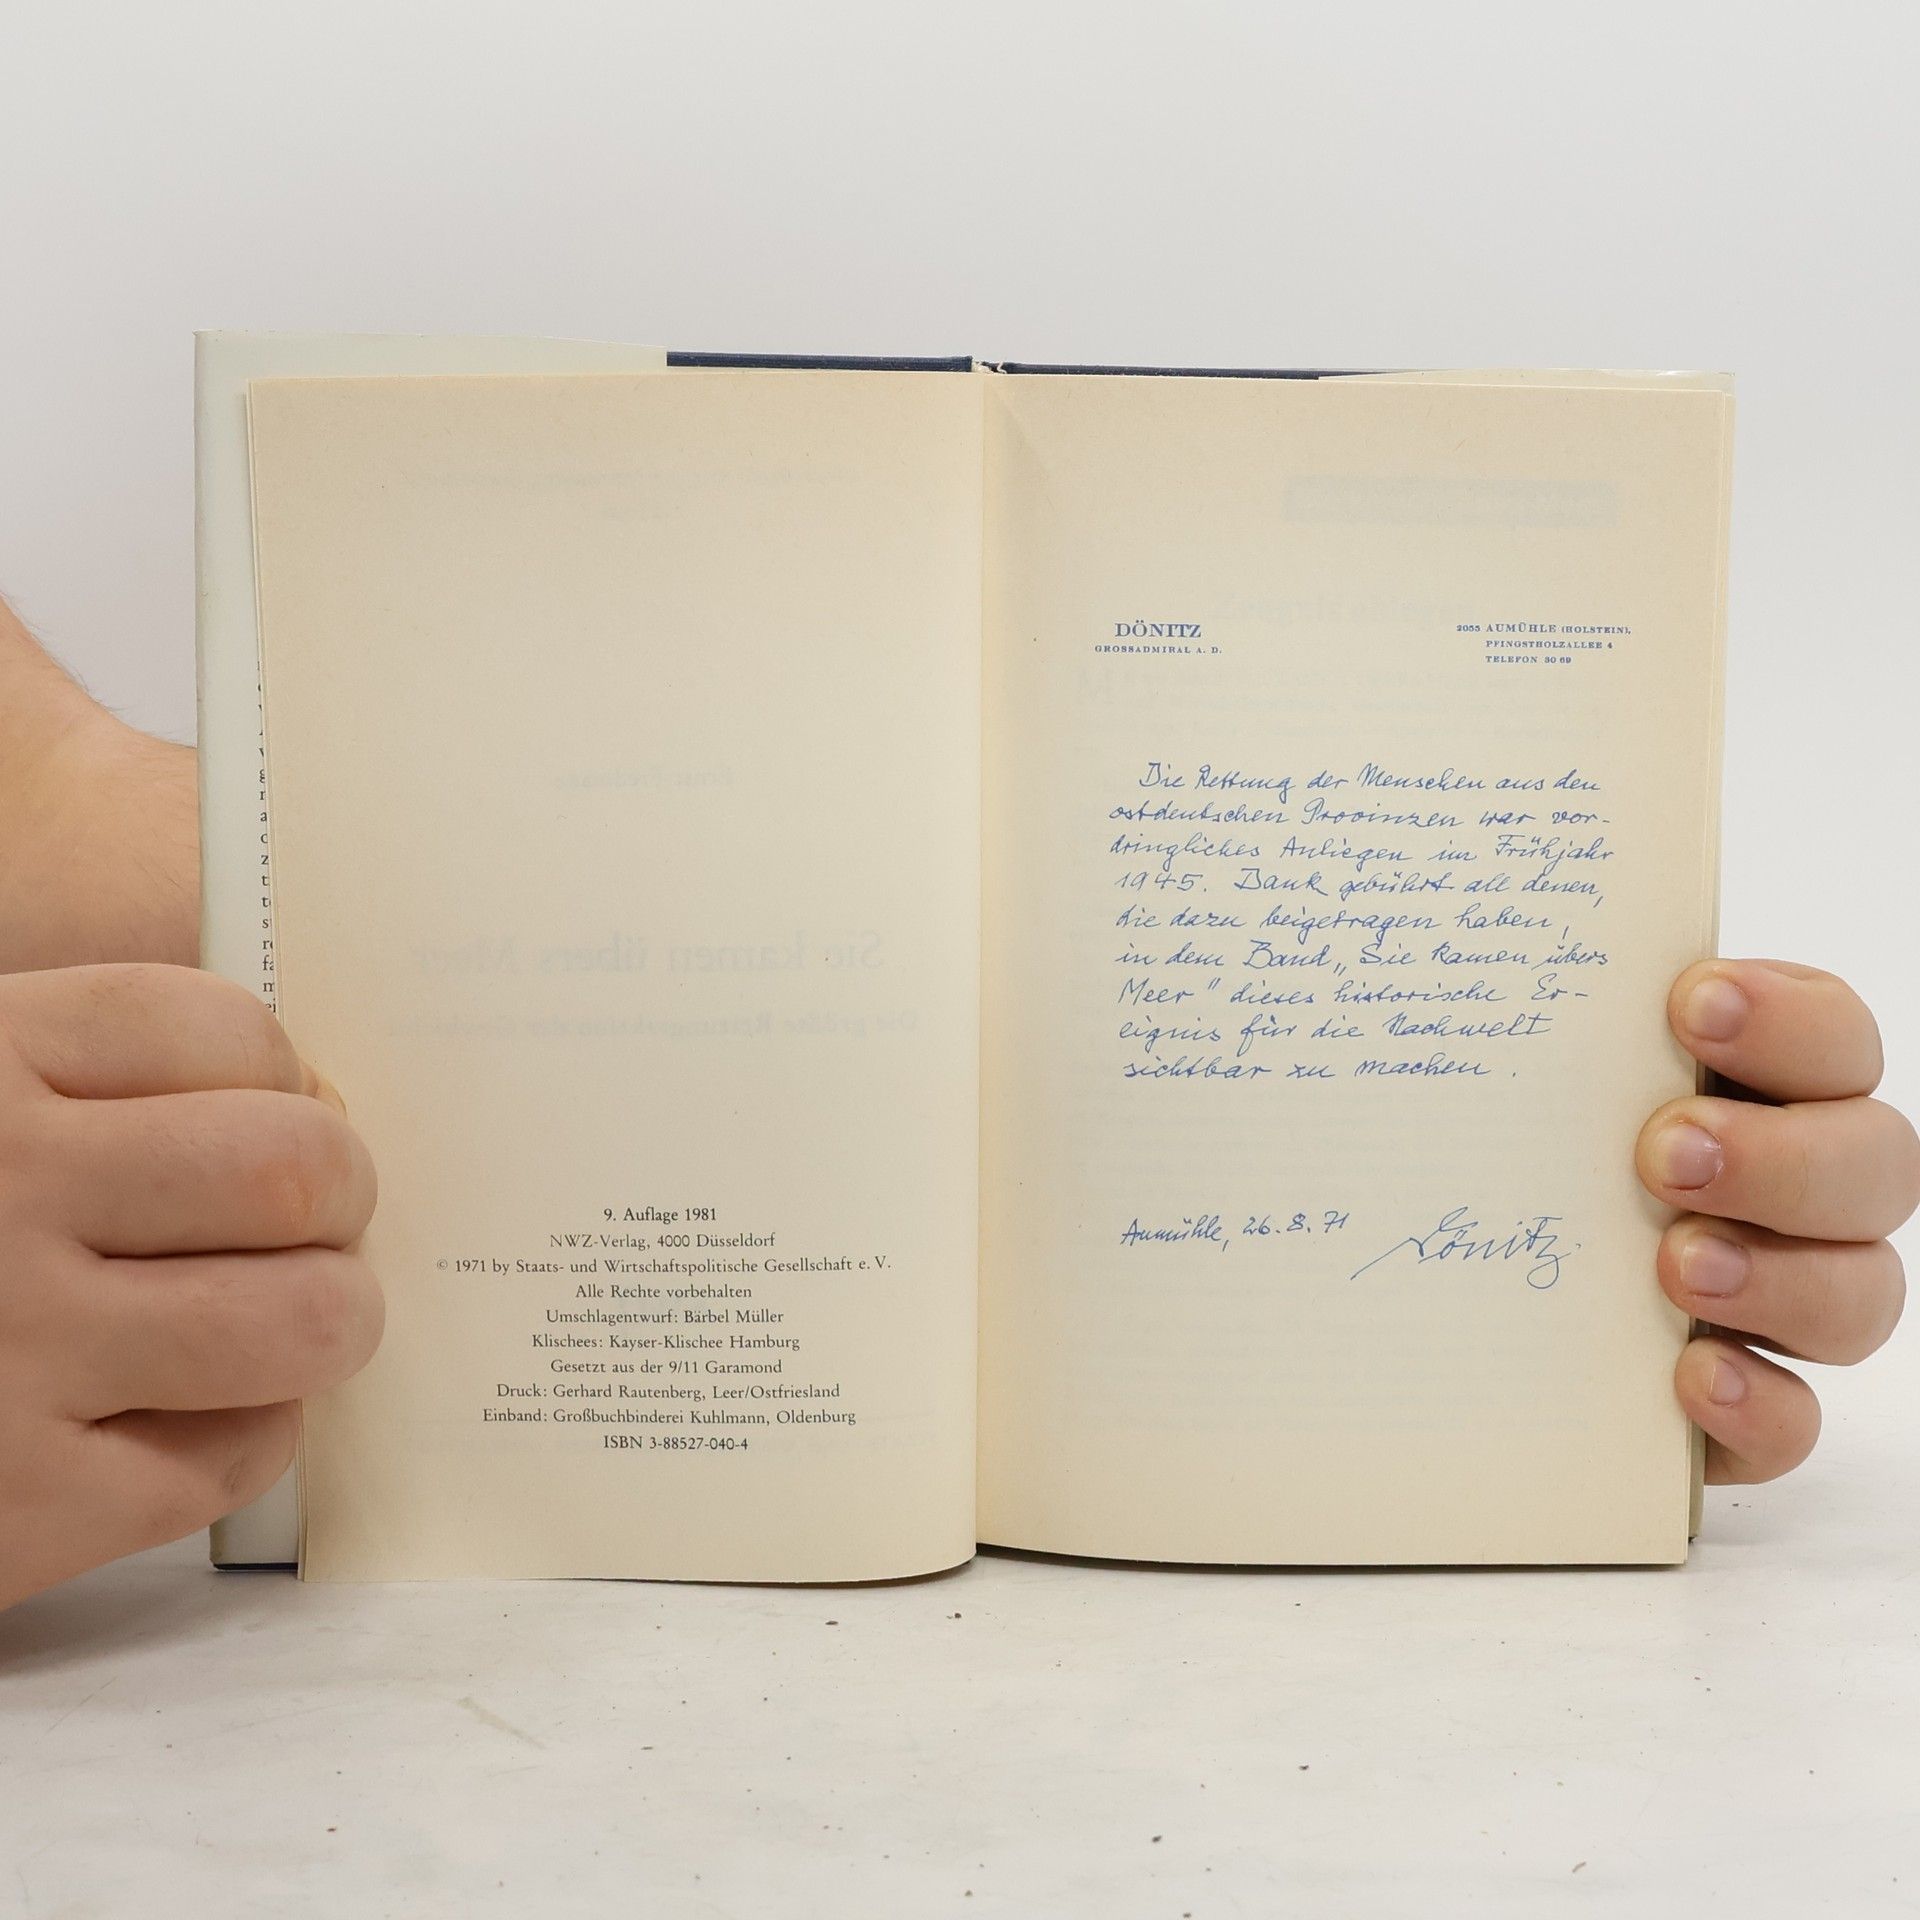 9. Auflage 1981
NWZ-Verlag, 4000 Düsseldorf
© 1971 by Staats- und Wirtschaftspolitische Gesellschaft e. V.
Alle Rechte vorbehalten
Umschlagentwurf: Bärbel Müller
Klischees: Kayser-Klischee Hamburg
Gesetzt aus der 9/11 Garamond
Druck: Gerhard Rautenberg, Leer/Ostfriesland
Einband: Großbuchbinderei Kuhlmann, Oldenburg
ISBN 3-88527-040-4
DÖNITZ
GROSSADMIRAL A. D.
2055 AUMÜHLE (HOLSTEIN),
PFINGSTHOLZALLEE 4
TELEFON 30 69
Die Rettung der Menschen aus den
ostdeutschen Provinzen war vor-
dringliches Anliegen im Frühjahr
1945. Dank gebührt all denen,
die dazu beigetragen haben,
in dem Band „Sie kamen übers
Meer" dieses historische Er-
eignis für die Nachwelt
sichtbar zu machen.
Aumühle, 26.8.71
Dönitz.